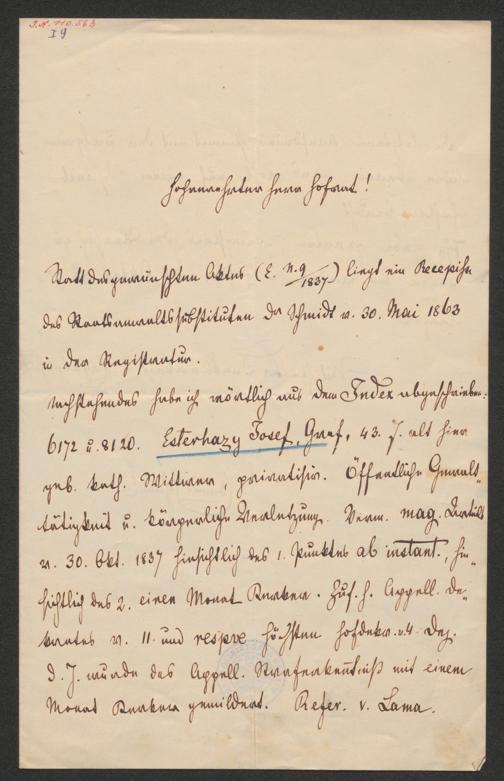 I.N. 110.563
I 9
Hochverehrter Herr Hofrat!
Statt des gewünschten Aktes (E. N. 9/1837) liegt ein Recepisse
des Staatsanwaltssubstituten Dr Schmidt v. 30. Mai 1863
in der Registratur.
Nachstehendes habe ich wörtlich aus dem Index abgeschrieben:
6172 u. 8120. Esterhazy Josef, Graf, 43. J. alt hier
geb. kath. Wittwer, privatisir. Öffentliche Gewalt-
tätigkeit u. körperliche Verletzung. Verm. mag. Urteils
v. 30. Okt. 1837 hinsichtlich des 1. Punktes ab instant., hin-
sichtlich des 2. einen Monat Kerker. Zuf. h. Appell. De-
kretes v. 11. und respve höchsten Hofdekr. v. 4. Dez.
d. J. wurde das Appell. Straferkentniß mit einem
Monat Kerker gemildert. Refer. v. Lama.